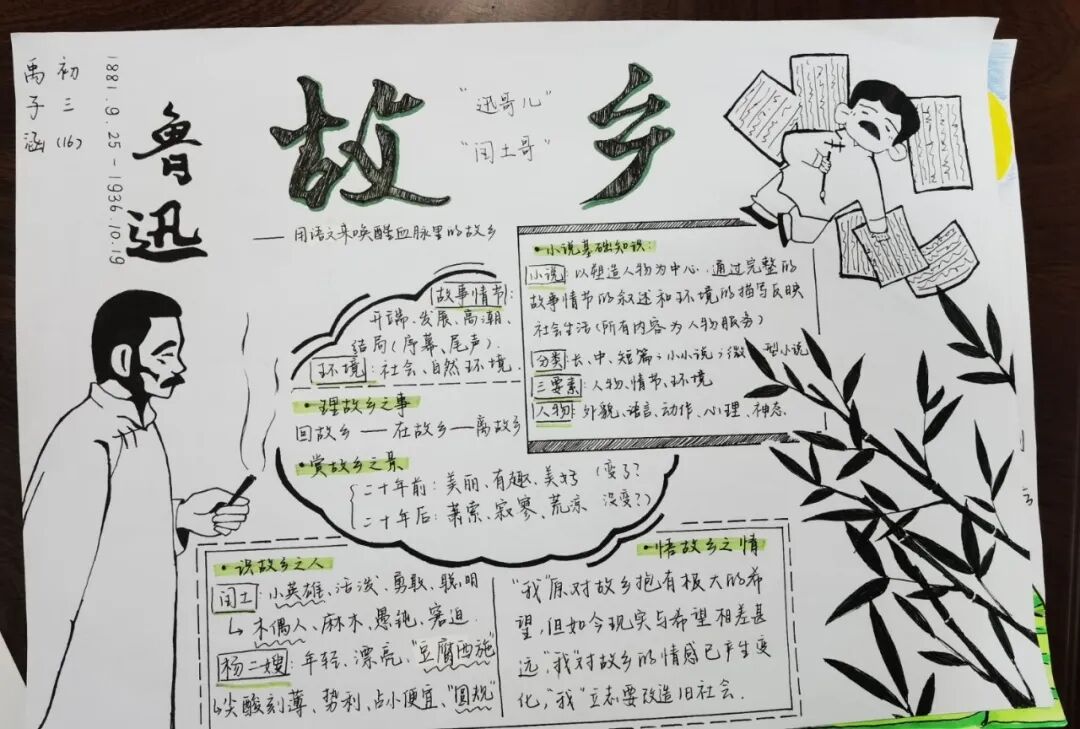 初三(16)
禹子涵
1881.9.25-1936.10.19
鲁迅
故乡
"迅哥儿"
"闰土哥"
——用语文来唤醒血脉里的故乡
•小说基础知识:
小说:以塑造人物为中心,通过完整的
故事情节的叙述和环境的描写反映
社会生活(所有内容为人物服务)
分类:长、中、短篇,小小说,微型小说
三要素:人物、情节、环境
人物:外貌、语言、动作、心理、神态.
故事情节:
开端、发展、高潮、
结局(序幕、尾声).
环境:社会、自然环境.
•理故乡之事
回故乡——在故乡——离故乡
•赏故乡之景
二十年前:美丽、有趣、美好 (变了?
二十年后:萧索、寂寥、荒凉 没变?)
•识故乡之人
闰土:小英雄、活泼、勇敢、聪明
↳木偶人、麻木、愚钝、窘迫.
杨二嫂:年轻、漂亮、"豆腐西施"
↳尖酸刻薄、势利、占小便宜、"圆规"
•悟故乡之情
"我"原对故乡抱有很大的希
望,但如今现实与希望相差甚
远,"我"对故乡的情感已产生变
化,"我"立志要改造旧社会.